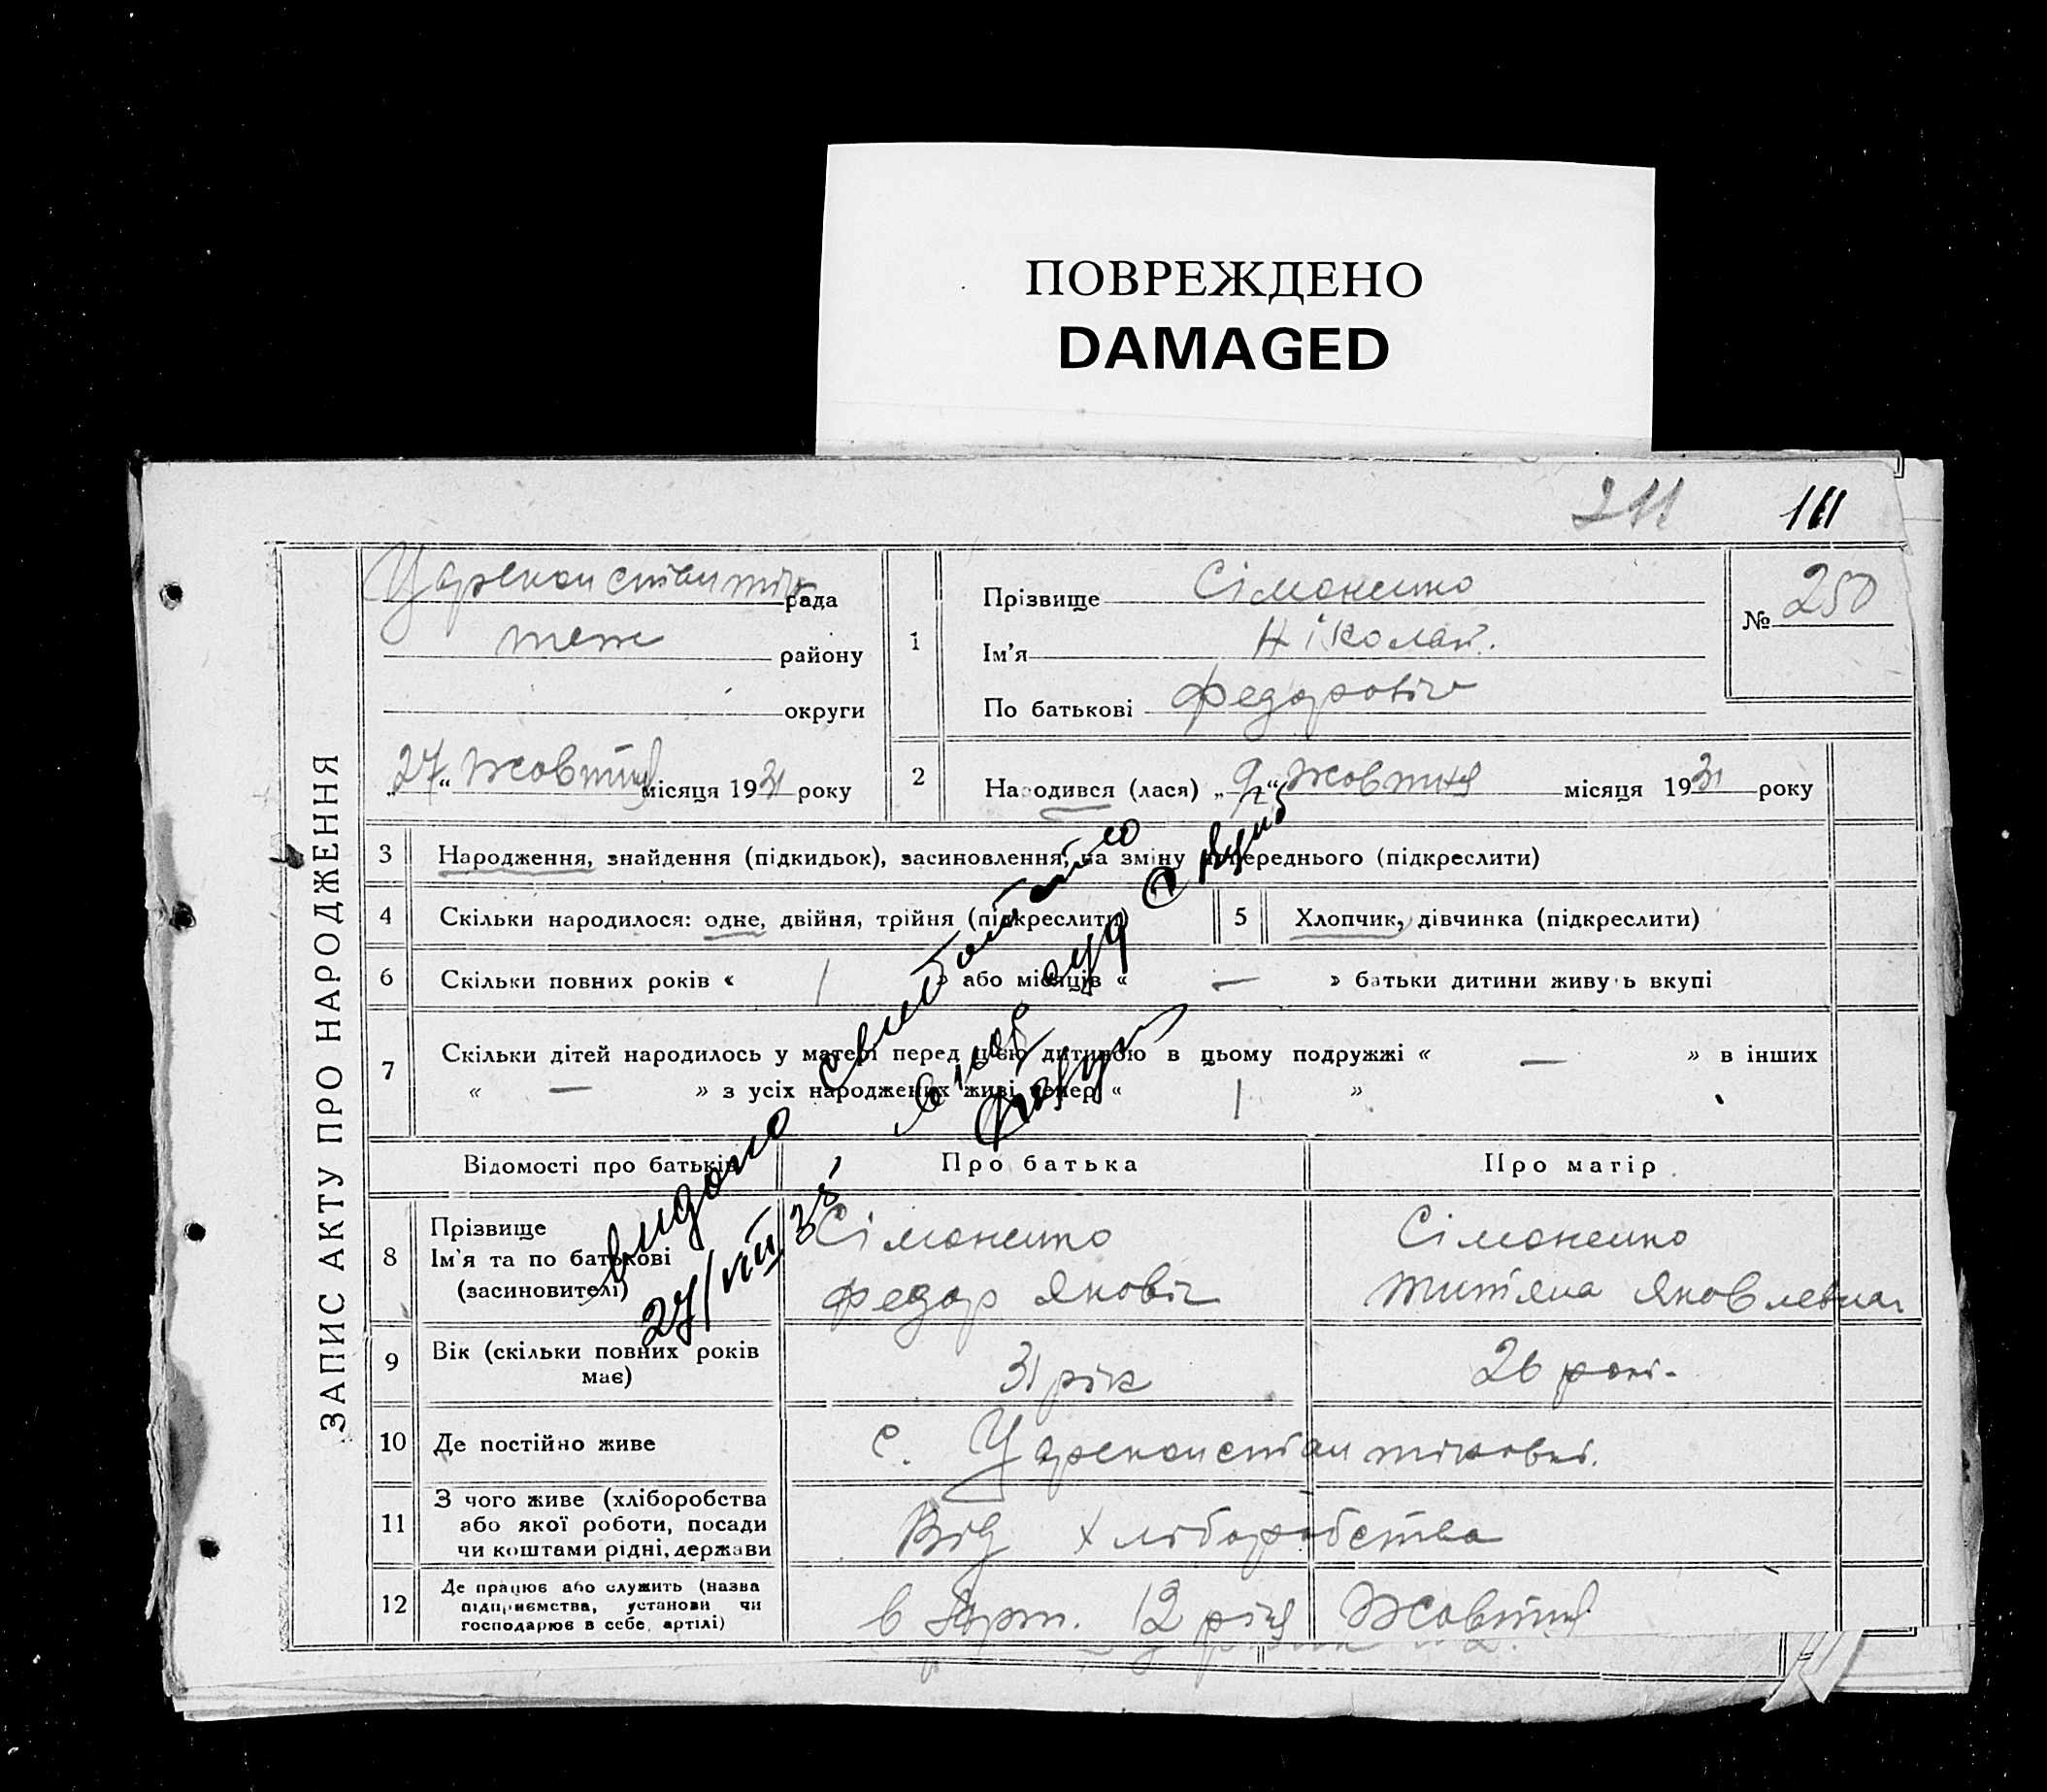 ПОВРЕЖДЕНО
DAMAGED
211 111
ЗАПИС АКТУ ПРО НАРОДЖЕННЯ
Цареконстантин рада
теж району
округи
„27“ Жовтня місяця 1931 року
1
Прізвище Сімоненко
Ім'я Ніколай.
По батькові Федоровіч
№ 250
2 Народився (лася) „9“ Жовтня місяця 1931 року
3 Народження, знайдення (підкидьок), засиновлення, на зміну попереднього (підкреслити)
4 Скільки народилося: одне, двійня, трійня (підкреслити)
5 Хлопчик, дівчинка (підкреслити)
6 Скільки повних років « 1 » або місяців « — » батьки дитини живуть вкупі
7 Скільки дітей народилось у матері перед цією дитиною в цьому подружжі « — » в інших
« — » з усіх народжених живі тепер « 1 »
Відомості про батьків Про батька Про матір
8 Прізвище
Ім'я та по батькові
(засиновителі)
Сімоненко
Федор Яковіч
Сімоненко
Титяна Яковлевна
9 Вік (скільки повних років
має)
31 рік
26 рокі.
10 Де постійно живе
с. Цареконстантіновкі.
11 З чого живе (хліборобства
або якої роботи, посади
чи коштами рідні, держави
Від хліборобства
12 Де працює або служить (назва
підприємства, установи чи
господарює в себе, артілі)
в Арт. 12 річя Жовтня
видано
27/VIII 38